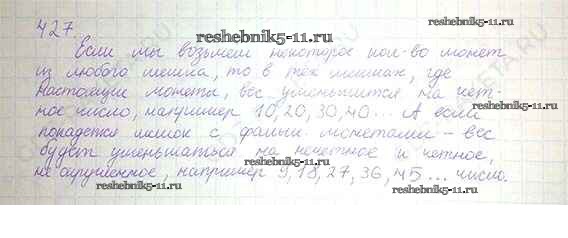 427.
reshebnik5-11.ru
Если мы возьмем некоторое кол-во монет
из любого мешка, то в тех мешках, где
настоящие монеты, вес уменьшится на чет-
ное число, например 10, 20, 30, 40... А если
reshebnik5-11.ru
попадется мешок с фальш. монетами - вес
будет уменьшаться на нечетное и четное,
не округленное, например 9, 18, 27, 36, 45... число.
reshebnik5-11.ru
reshebnik5-11.ru